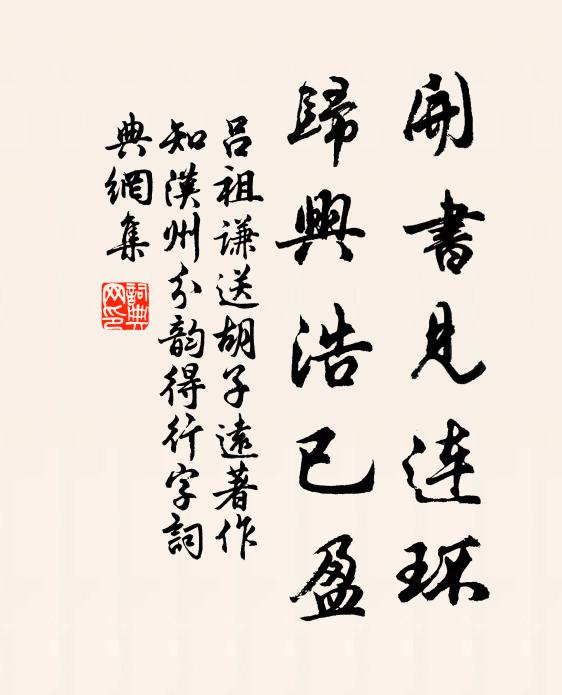 開書見连环
歸興浩已盈
呂祖谦送胡子遠著作
知漢州分韵得行字詞
典網集
詞典
网印